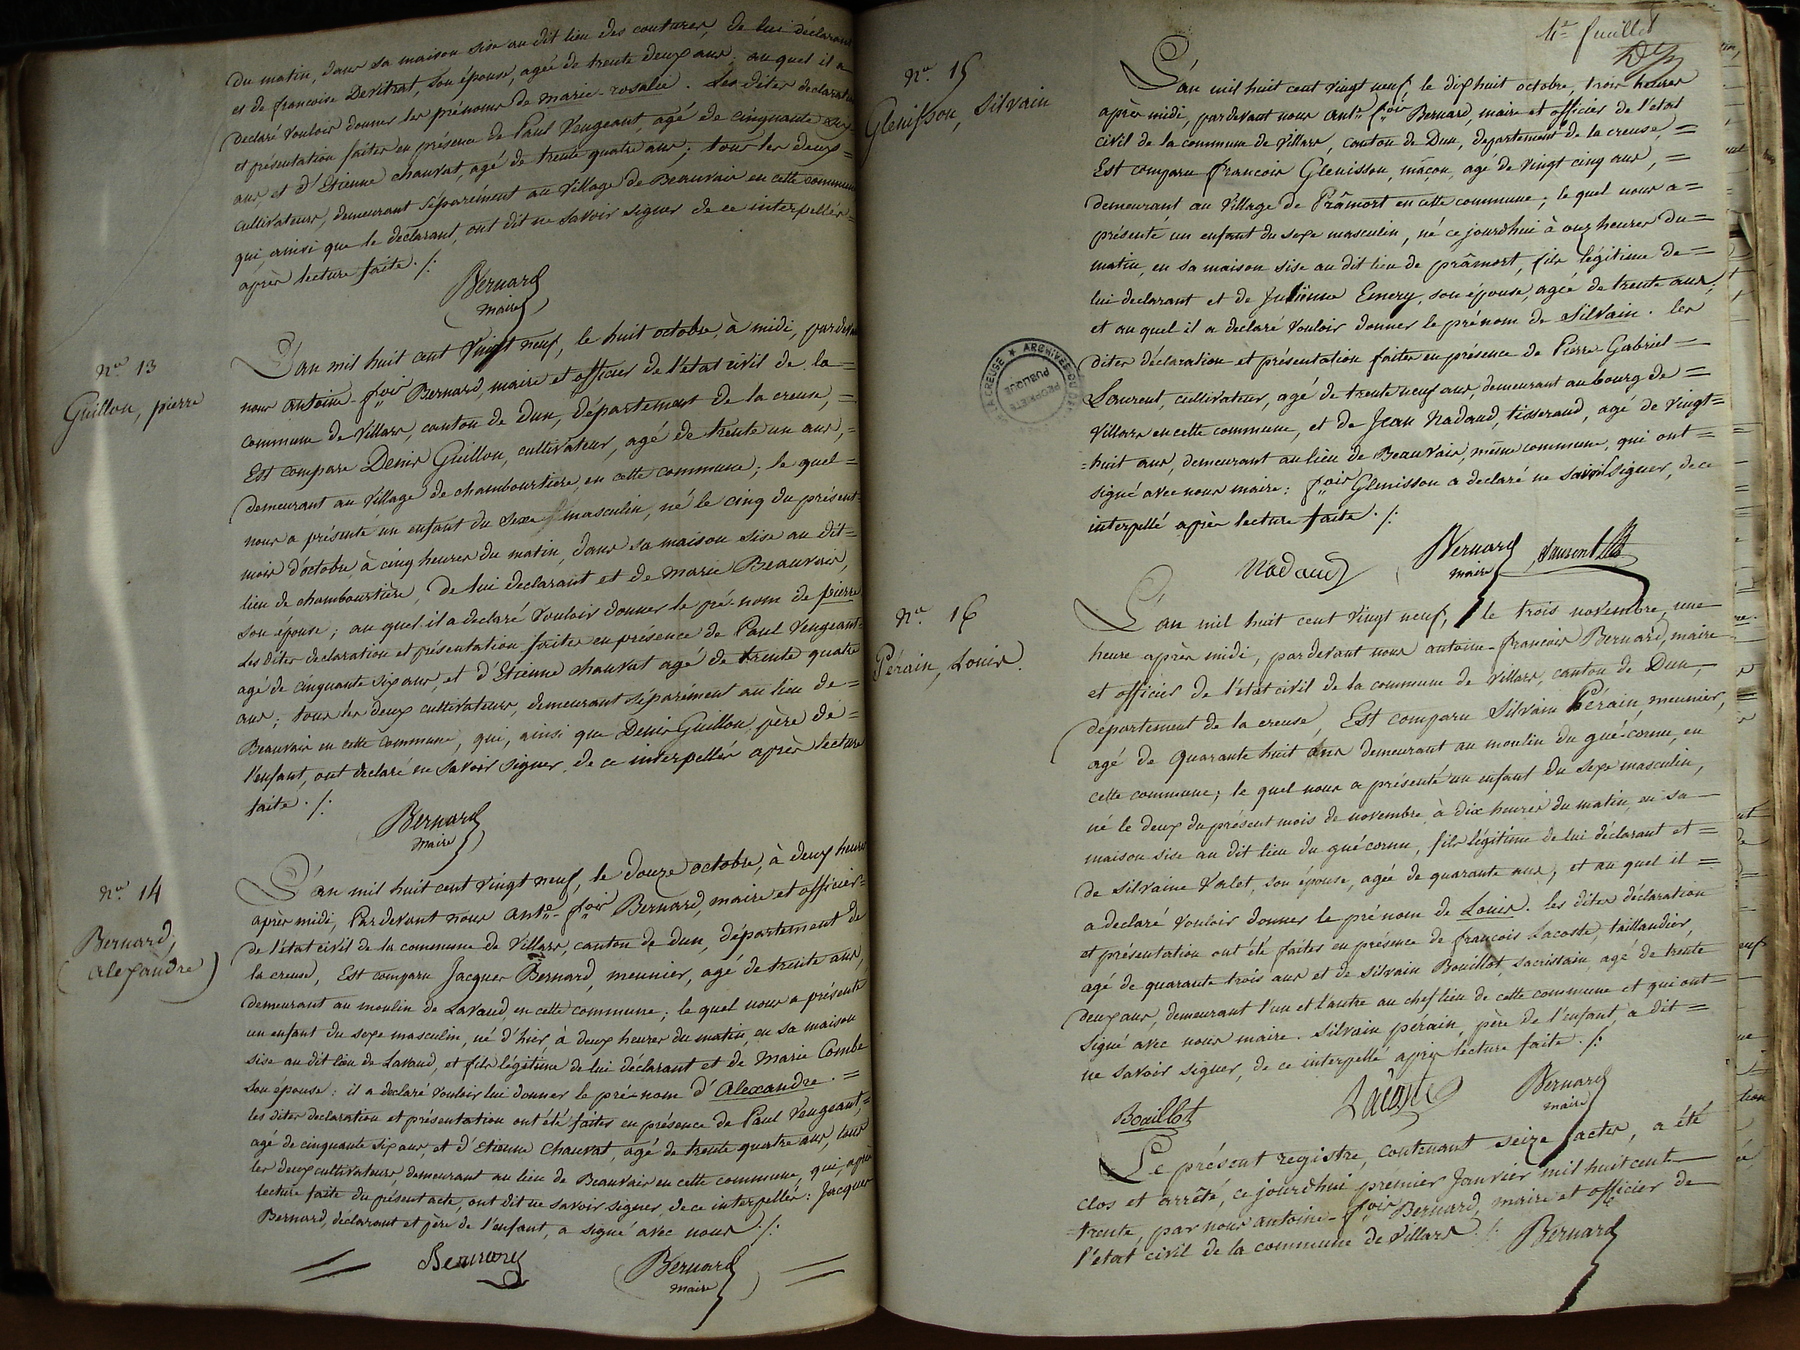 du matin, dans sa maison sise au dit lieu des coutures, de lui déclarant
et de francoise Devitrat, son épouse, agée de trente deux ans, au quel il a
declaré vouloir donner les prénoms de marie-rosalie. Les dites declaration
et présentation faites en présence de Paul Vengeant, agé de cinquante six
ans et d'Etienne chauvat, agé de trente quatre ans; tous les deux =
cultivateurs, demeurant séparément au village de Beauvais en cette commune
qui, ainsi que le déclarant, ont dit ne savoir signer de ce interpellés =
après lecture faite ./:
Bernard
maire
No. 13
Guillon, pierre
L'an mil huit cent vingt neuf, le huit octobre, à midi, pardevant
nous antoine-fçois Bernard, maire et officier de l'état civil de la =
commune de Villars, canton de Dun, département de la creuse, =
Est comparu Denis Guillon, cultivateur, agé de trente un ans, =
demeurant au village de chambourtière, en cette commune; le quel =
nous a présenté un enfant du sexe masculin, né le cinq du présent
mois d'octobre, à cinq heures du matin, dans sa maison sise au dit =
lieu de chambourtière, de lui declarant et de marie Beauvais,
son épouse; au quel il a declaré vouloir donner le pré-nom de pierre
Les dites declaration et présentation faites en présence de Paul Vengeant
agé de cinquante six ans, et d'Etienne chauvat agé de trente quatre
ans; tous les deux cultivateurs, demeurant séparément au lieu de =
Beauvais en cette commune, qui, ainsi que Denis Guillon, père de =
l'enfant, ont declaré ne savoir signer, de ce interpellés après lecture
faite ./:
Bernard
maire
No. 14
Bernard,
alexandre
L'an mil huit cent vingt neuf, le douze octobre, à deux heures
après midi, Par devant nous antne-fçois Bernard, maire et officier =
de l'état civil de la commune de Villars, canton de dun, département de
la creuse, Est comparu Jacques Bernard, meunier, agé de trente ans,
demeurant au moulin de Lavaud, en cette commune; le quel nous a présenté
un enfant du sexe masculin, né d'hier, à deux heures du matin, en sa maison
sise au dit lieu de Lavaud, et fils légitime de lui déclarant et de Marie Combe
son épouse: il a declaré vouloir lui donner le pré-nom d'Alexandre. =
les dites declaration et présentation ont été faites en présence de Paul Vengeant, =
agé de cinquante six ans, et d'Etienne chauvat, agé de trente quatre ans, tous
les deux cultivateurs, demeurant au lieu de Beauvais en cette commune, qui, après
lecture faite du présent acte, ont dit ne savoir signer, de ce interpellés: Jacques
Bernard, déclarant et père de l'enfant, a signé avec nous ./:
Bernard
Bernard
maire
4e feuillet
No. 15
Glenisson, Silvain
L'an mil huit cent vingt neuf, le dix huit octobre, trois heures
après midi, pardevant nous antne fçois Bernard, maire et officier de l'état
civil de la commune de Villars, canton de Dun, departement de la creuse, =
Est comparu francois Glenisson, maçon, agé de vingt cinq ans, =
demeurant au village de Prâmort en cette commune; le quel nous a =
présenté un enfant du sexe masculin, né ce jourd'hui à onze heures du =
matin, en sa maison sise au dit lieu de prâmort, fils légitime de =
lui declarant et de Julienne Emery, son épouse, agée de trente ans,
et au quel il a declaré vouloir donner le prénom de Silvain. les
dites déclaration et présentation faites en présence de Pierre Gabriel =
Laurent, cultivateur, agé de trente neuf ans, demeurant au bourg de =
Villars en cette commune, et de Jean Nadaud, tisserand, agé de vingt =
= huit ans, demeurant au lieu de Beauvais, même commune, qui ont =
signé avec nous maire; fçois Glenisson a declaré ne savoir signer, de ce
interpellé après lecture faite ./:
Nadaud
Bernard
maire
Laurent
ARCHIVES DU DÉP
LA CREUSE
PROPRIÉTÉ
PUBLIQUE
No. 16
Pérain, Louis.
L'an mil huit cent vingt neuf, le trois novembre, une
heure après midi, pardevant nous antoine-francois Bernard, maire
et officier de l'état civil de la commune de Villars, canton de Dun,
département de la creuse, Est comparu Silvain Pérain, meunier,
agé de quarante huit ans demeurant au moulin du gué-cornu, en
cette commune; le quel nous a présenté un enfant du sexe masculin,
né le deux du présent mois de novembre, à dix heures du matin, en sa
maison sise au dit lieu du gué cornu, fils légitime de lui déclarant et =
de Silvaine Valet, son épouse, agée de quarante ans; et au quel il =
a declaré vouloir donner le pré nom de Louis. les dites déclaration
et présentation ont été faites en présence de françois Lacoste, taillandier,
agé de quarante trois ans et de Silvain Bouillot, sacristain, agé de trente
deux ans, demeurant l'un et l'autre au chef lieu de cette commune et qui ont
signé avec nous maire. Silvain pérain, père de l'enfant, a dit =
ne savoir signer, de ce interpellé après lecture faite ./:
Bouillot
Lacoste
Bernard
maire
Le présent registre, contenant seize actes, a été
clos et arrêté, ce jourd'hui premier Janvier mil huit cent
trente, par nous antoine-fçois Bernard, maire et officier de
l'état civil de la commune de Villars ./:
Bernard